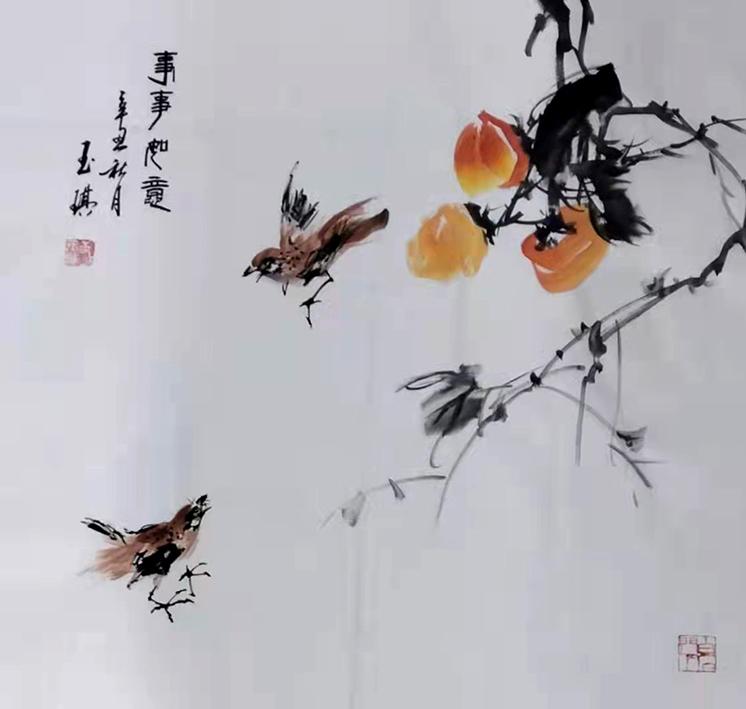 事事如意
辛丑秋月
玉琪